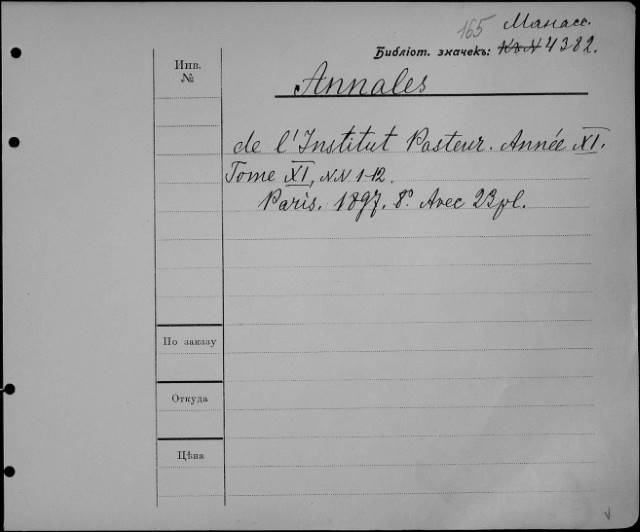 165 Манасс.
Библіот. значекъ: К ъ N 4382.
Инв.
№
Annales
de l'Institut Pasteur. Année XI.
Tome XI, NN 1-12.
Paris. 1897. 8º. Avec 23 pl.
По заказу
Откуда
Цѣна